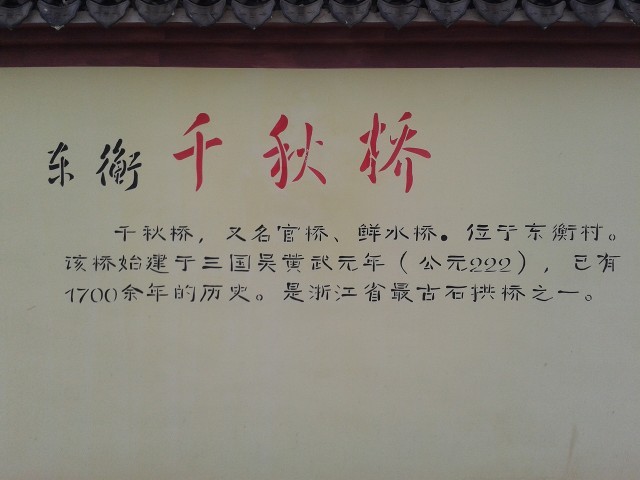 东衡 千秋桥
千秋桥，又名官桥、鲜水桥。位于东衡村。
该桥始建于三国吴黄武元年（公元222），已有
1700余年的历史。是浙江省最古石拱桥之一。